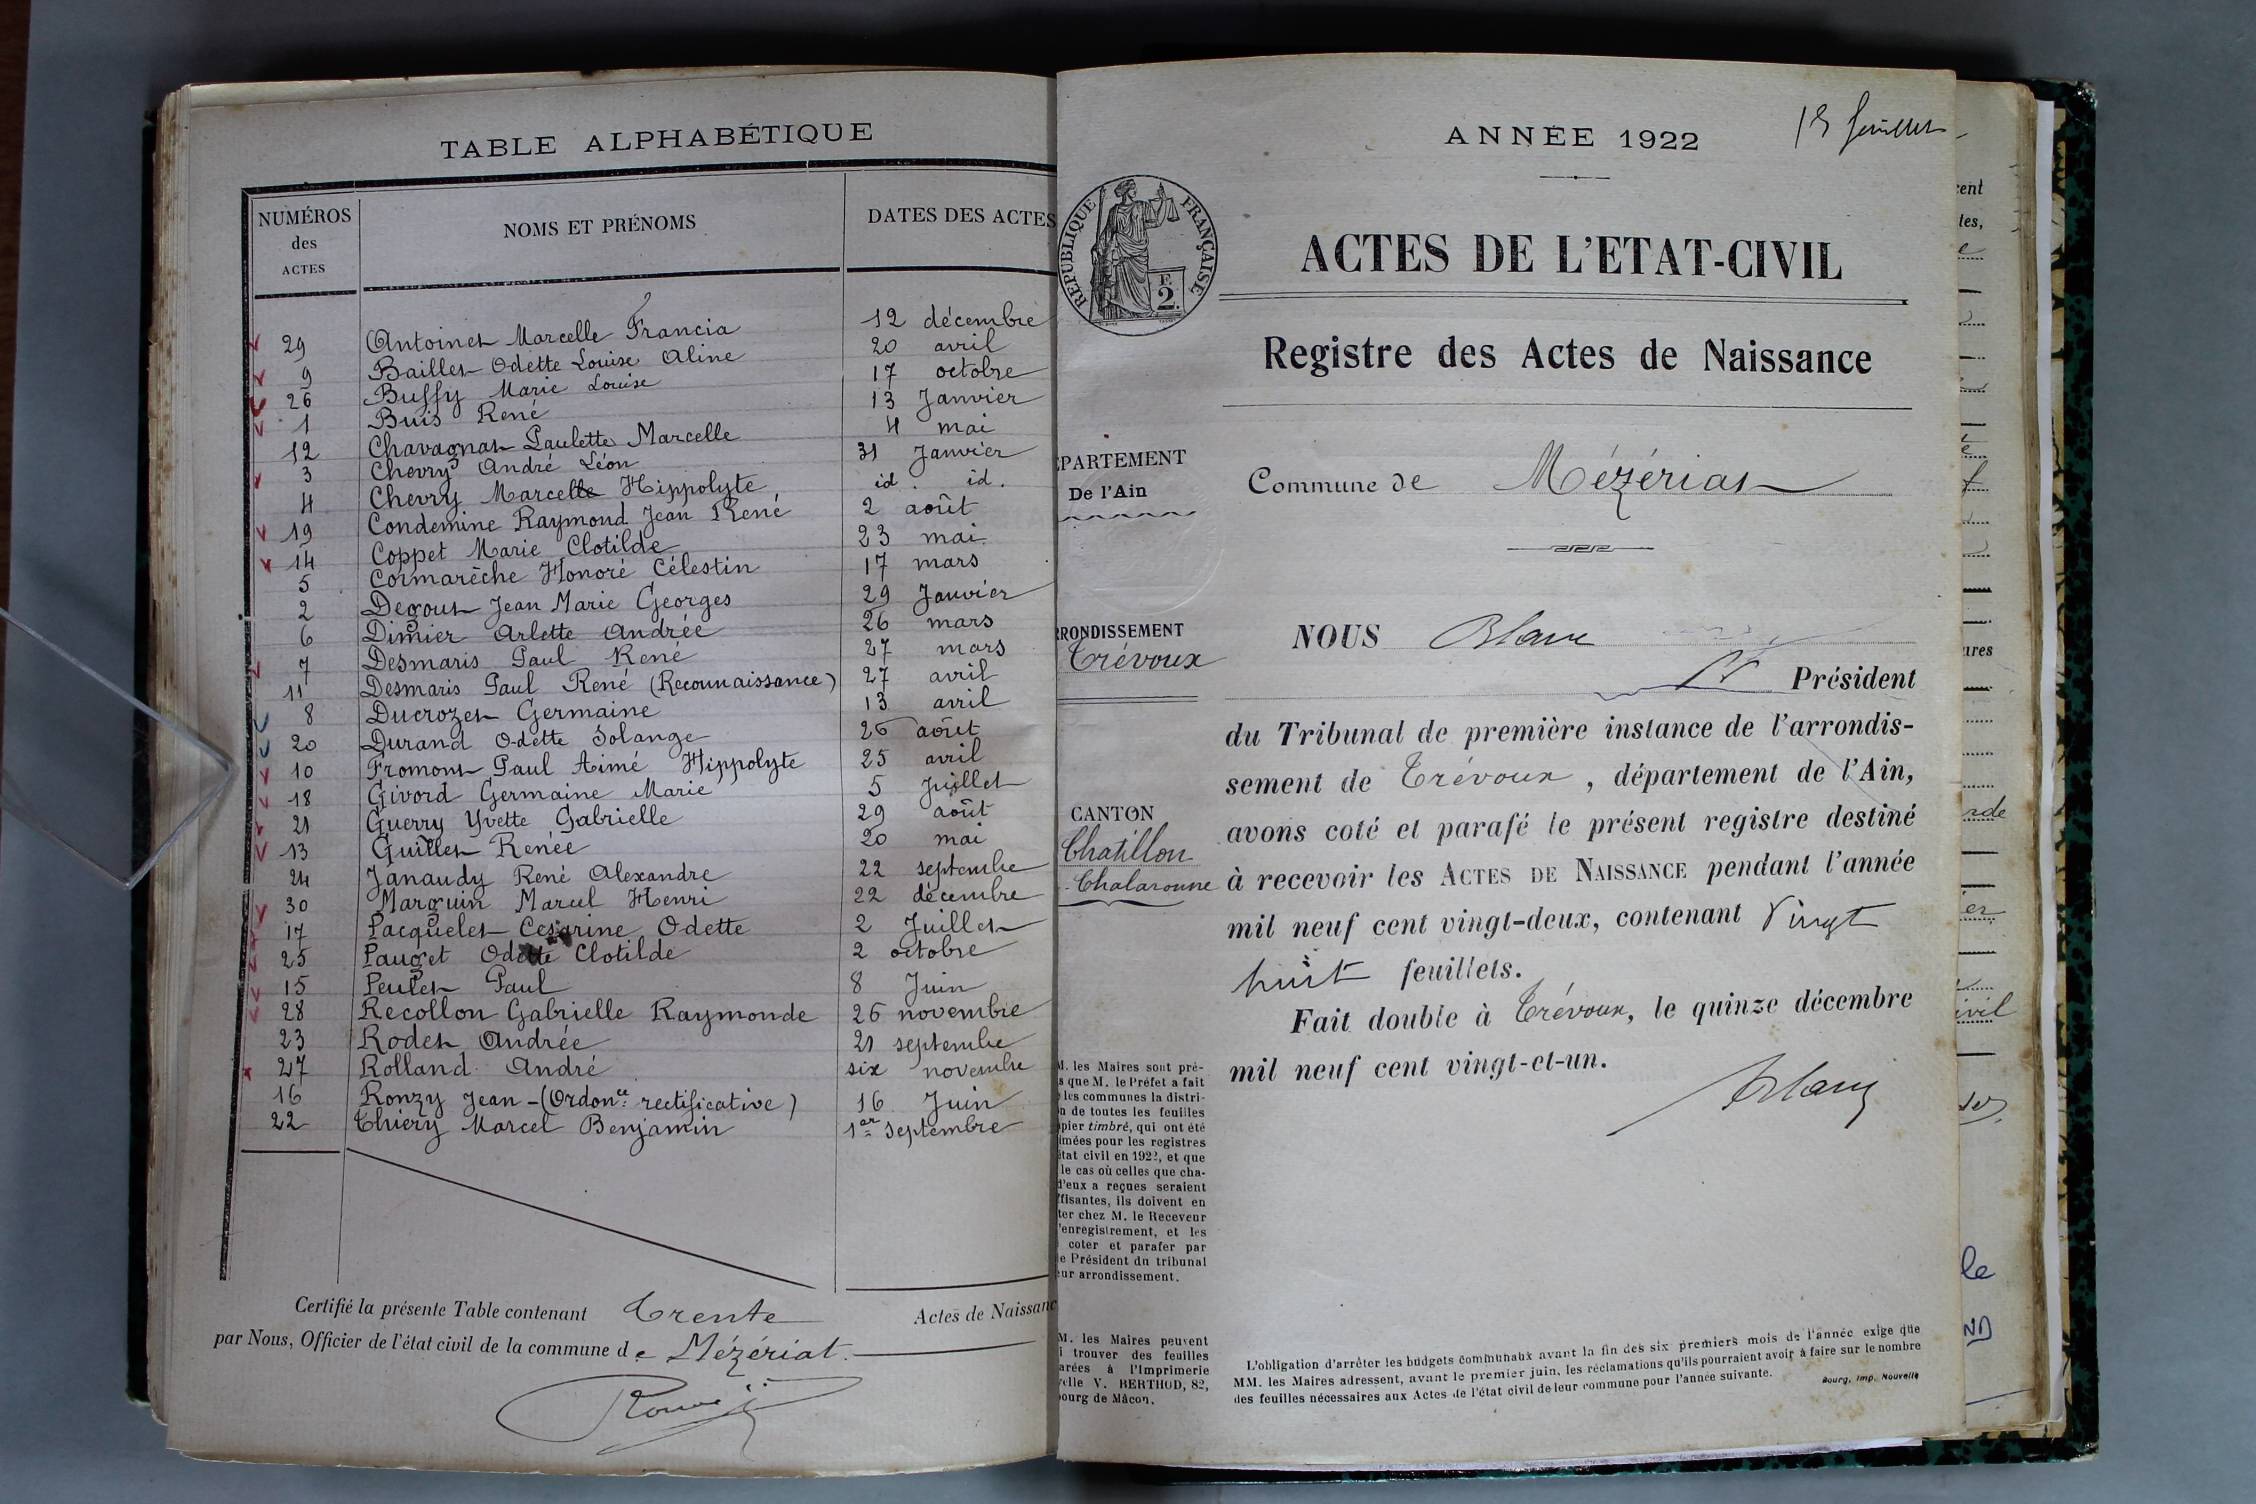 TABLE ALPHABÉTIQUE
NUMÉROS des ACTES
NOMS ET PRÉNOMS
DATES DES ACTES
29 Antoinet Marcelle Francia 12 décembre
9 Baillet Odette Louise Aline 20 avril
26 Buffy Marie Louise 17 octobre
1 Buis René 13 Janvier
12 Chavagnat Paulette Marcelle 4 mai
3 Chevry André Léon 31 Janvier
4 Chevry Marcelle Hippolyte id. id.
19 Condemine Raymond Jean René 2 août
14 Coppet Marie Clotilde 23 mai
5 Cormarèche Honoré Célestin 17 mars
2 Degout Jean Marie Georges 29 Janvier
6 Dimier Arlette Andrée 26 mars
7 Desmaris Paul René 27 mars
11 Desmaris Paul René (Reconnaissance) 27 avril
8 Ducrozet Germaine 13 avril
20 Durand Odette Solange 26 août
10 Fromont Paul Aimé Hippolyte 25 avril
18 Givord Germaine Marie 5 Juillet
21 Guerry Yvette Gabrielle 29 août
13 Guillet Renée 20 mai
24 Janaudy René Alexandre 22 septembre
30 Marguin Marcel Henri 22 décembre
17 Pacquelet Cesarine Odette 2 Juillet
25 Pauget Odette Clotilde 2 octobre
15 Peulet Paul 8 Juin
28 Recollon Gabrielle Raymonde 26 novembre
23 Rodet Andrée 21 septembre
27 Rolland André six novembre
16 Ronzy Jean - (Ordonce: rectificative) 16 Juin
22 Thiery Marcel Benjamin 1er septembre
Certifié la présente Table contenant Trente Actes de Naissanc
par Nous, Officier de l'état civil de la commune de Mézériat.
15 feuillets
ANNÉE 1922
RÉPUBLIQUE FRANÇAISE
F. 2.
ACTES DE L'ETAT-CIVIL
Registre des Actes de Naissance
PARTEMENT
De l'Ain
Commune de Mézériat
RRONDISSEMENT
Trévoux
NOUS Blanc
Président
du Tribunal de première instance de l'arrondis-
sement de Trévoux, département de l'Ain,
avons coté et parafé le présent registre destiné
à recevoir les ACTES DE NAISSANCE pendant l'année
mil neuf cent vingt-deux, contenant Vingt
huit feuillets.
Fait double à Trévoux, le quinze décembre
mil neuf cent vingt-et-un.
Blanc
CANTON
Chatillon
Chalaronne
M. les Maires sont pré-
s que M. le Préfet a fait
les communes la distri-
n de toutes les feuilles
pier timbré, qui ont été
imées pour les registres
état civil en 1922, et que
le cas où celles que cha-
d'eux a reçues seraient
ffisantes, ils doivent en
ter chez M. le Receveur
l'enregistrement, et les
coter et parafer par
e Président du tribunal
eur arrondissement.
M. les Maires peuvent
trouver des feuilles
arées à l'Imprimerie
velle V. BERTHOD, 82,
bourg de Mâcon.
L'obligation d'arrêter les budgets communaux avant la fin des six premiers mois de l'année exige que
MM. les Maires adressent, avant le premier juin, les réclamations qu'ils pourraient avoir à faire sur le nombre
des feuilles nécessaires aux Actes de l'état civil de leur commune pour l'année suivante.
Bourg, Imp. Nouvelle